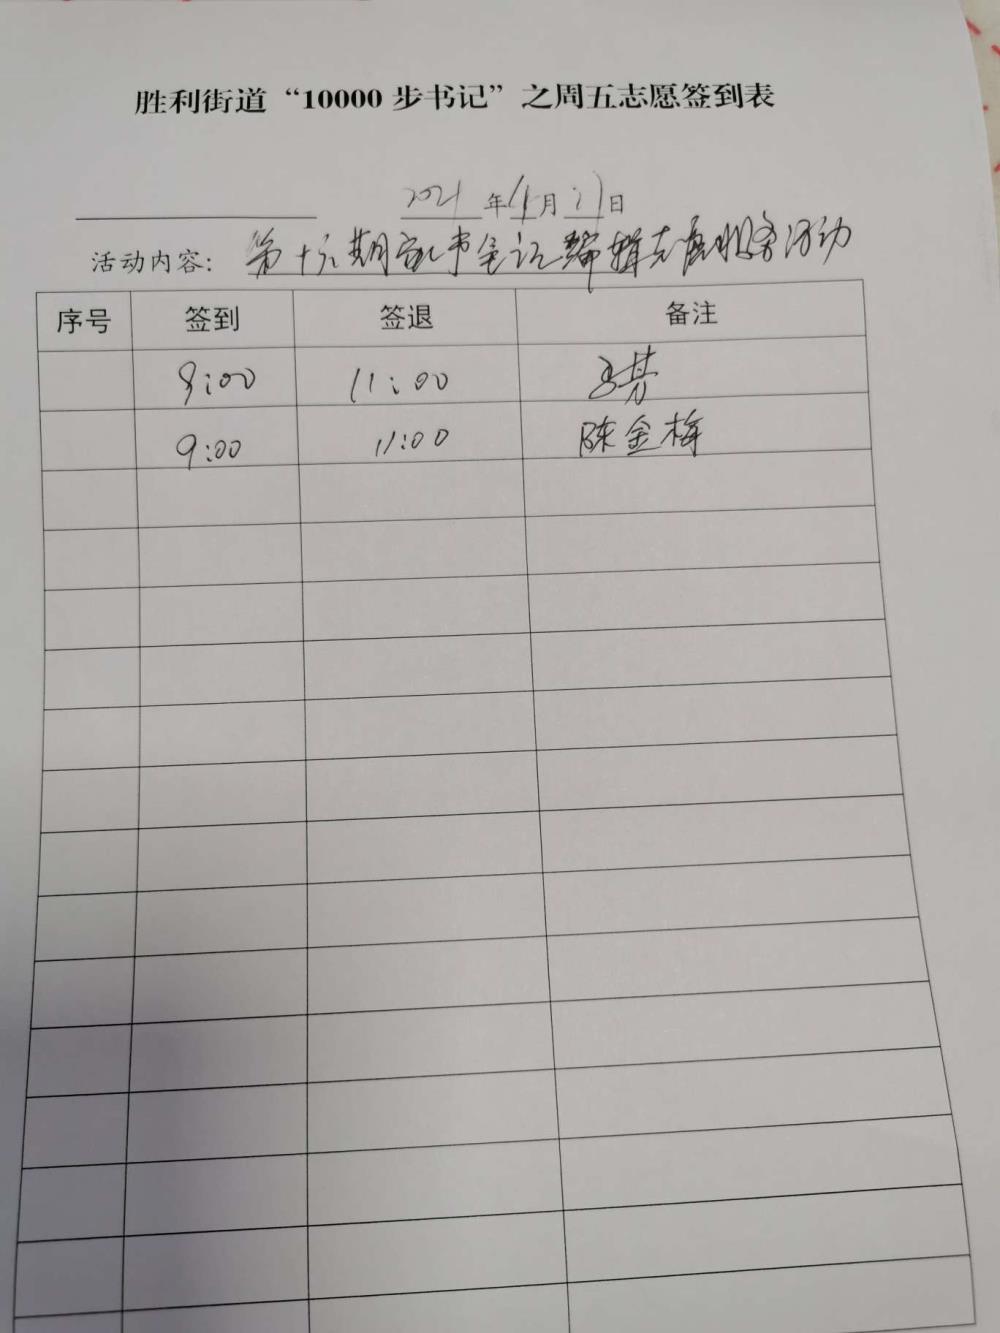 胜利街道“10000 步书记”之周五志愿签到表
2021 年 月 日
活动内容: 第十六期 书 记编辑志愿服务活动
序号 签到 签退 备注
9:00 11:00 芳
9:00 11:00 陈金梅